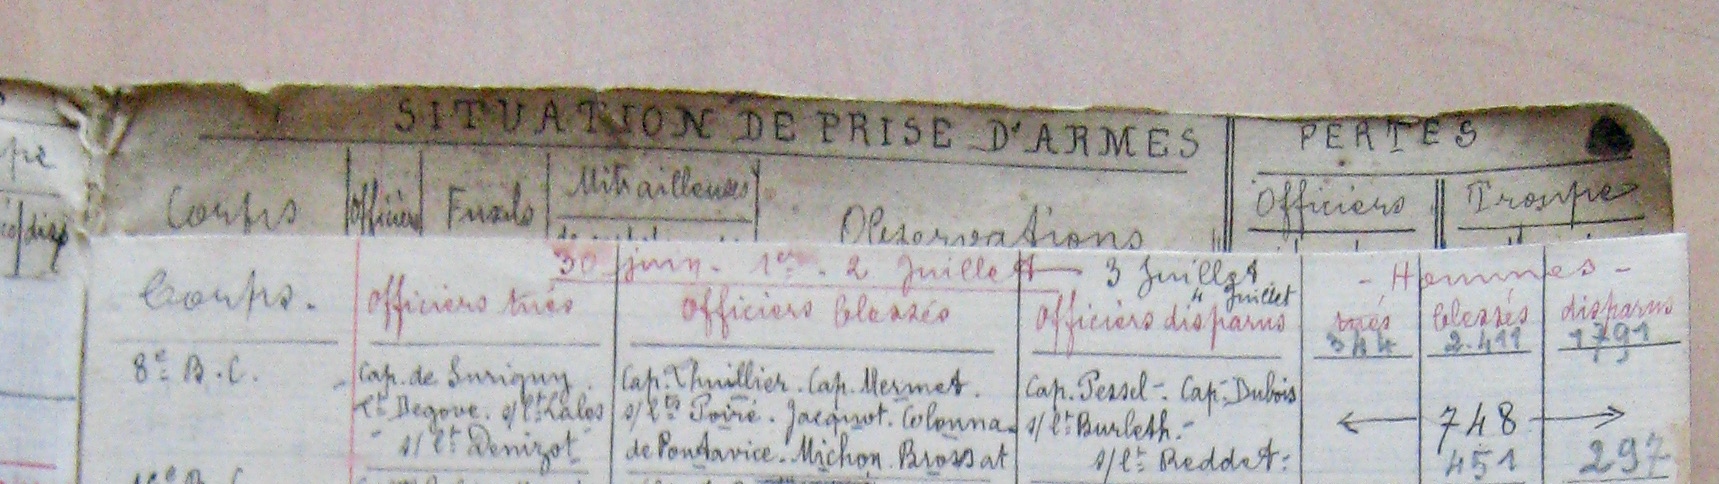 SITUATION DE PRISE D'ARMES PERTES
Corps Officiers Fusils Mitrailleuses Observations Officiers Troupe
30 juin - 1er - 2 Juillet 3 Juillet - Hommes -
4 Juillet
Corps. Officiers tués Officiers blessés Officiers disparus tués blessés disparus
344 2.411 1791
8e B.C. - Cap. de Surigny. Cap. Thuillier. Cap. Mermet. Cap. Pessel - Cap. Dubois
Lt Degove. s/lt Lalos s/lts Poiré. Jacquot. Colonna s/lt Burleth. - ← 748 →
- s/lt Denizot de Pontavice. Michon. Brossat s/lt Reddet: 451 297